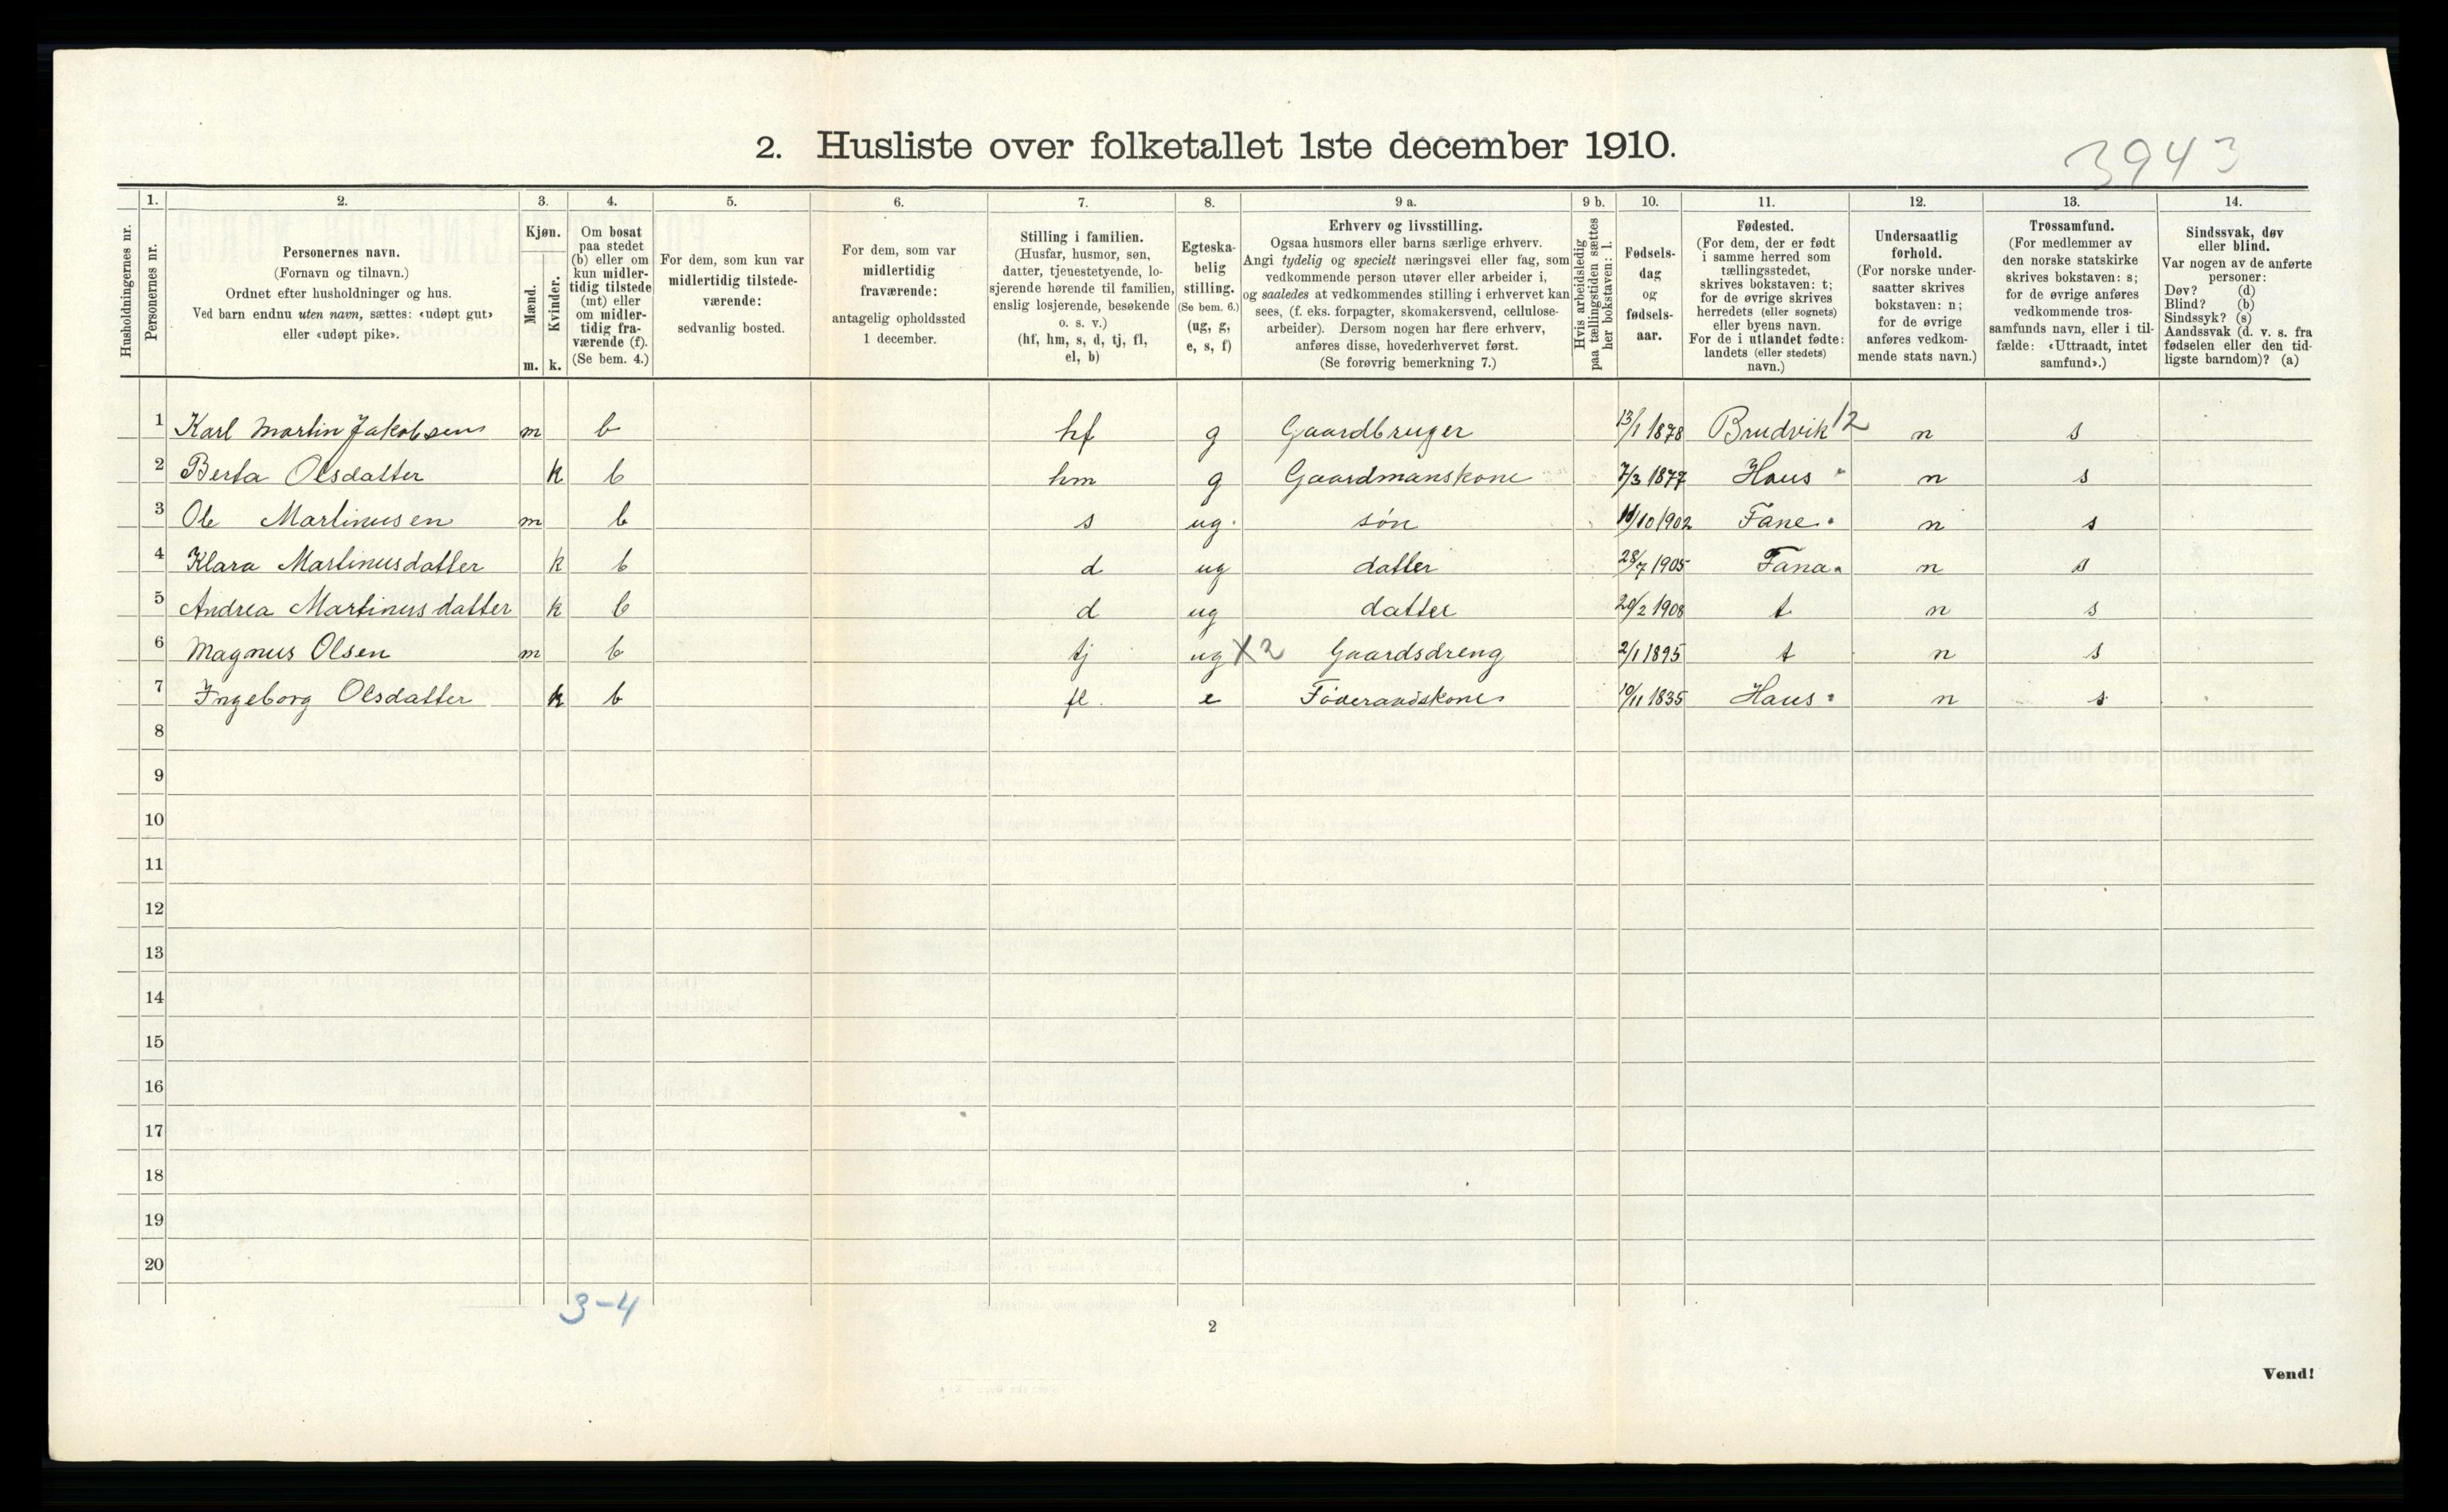 2. Husliste over folketallet 1ste december 1910.
3943
1. 2. 3. 4. 5. 6. 7. 8. 9 a. 9 b. 10. 11. 12. 13. 14.
Husholdningernes nr.
Personernes nr.
Personernes navn.
(Fornavn og tilnavn.)
Ordnet efter husholdninger og hus.
Ved barn endnu uten navn, sættes: «udøpt gut»
eller «udøpt pike».
Kjøn.
Mænd.
Kvinder.
m. k.
Om bosat
paa stedet
(b) eller om
kun midler-
tidig tilstede
(mt) eller
om midler-
tidig fra-
værende (f).
(Se bem. 4.)
For dem, som kun var
midlertidig tilstede-
værende:
sedvanlig bosted.
For dem, som var
midlertidig
fraværende:
antagelig opholdssted
1 december.
Stilling i familien.
(Husfar, husmor, søn,
datter, tjenestetyende, lo-
sjerende hørende til familien,
enslig losjerende, besøkende
o. s. v.)
(hf, hm, s, d, tj, fl,
el, b)
Egteska-
belig
stilling.
(Se bem. 6.)
(ug, g,
e, s, f)
Erhverv og livsstilling.
Ogsaa husmors eller barns særlige erhverv.
Angi tydelig og specielt næringsvei eller fag, som
vedkommende person utøver eller arbeider i,
og saaledes at vedkommendes stilling i erhvervet kan
sees, (f. eks. forpagter, skomakersvend, cellulose-
arbeider). Dersom nogen har flere erhverv,
anføres disse, hovederhvervet først.
(Se forøvrig bemerkning 7.)
Hvis arbeidsledig
paa tællingstiden sættes
her bokstaven: l.
Fødsels-
dag
og
fødsels-
aar.
Fødested.
(For dem, der er født
i samme herred som
tællingsstedet,
skrives bokstaven: t;
for de øvrige skrives
herredets (eller sognets)
eller byens navn.
For de i utlandet fødte:
landets (eller stedets)
navn.)
Undersaatlig
forhold.
(For norske under-
saatter skrives
bokstaven: n;
for de øvrige
anføres vedkom-
mende stats navn.)
Trossamfund.
(For medlemmer av
den norske statskirke
skrives bokstaven: s;
for de øvrige anføres
vedkommende tros-
samfunds navn, eller i til-
fælde: «Uttraadt, intet
samfund».)
Sindssvak, døv
eller blind.
Var nogen av de anførte
personer:
Døv? (d)
Blind? (b)
Sindssyk? (s)
Aandssvak (d. v. s. fra
fødselen eller den tid-
ligste barndom)? (a)
1 Karl Martin Jakobsen m b hf g Gaardbruger 13/1 1878 Brudvik 12 n s
2 Berta Olsdatter k b hm g Gaardmanskone 7/3 1877 Haus n s
3 Ole Martinusen m b s ug. søn 11/10 1902 Fane n s
4 Klara Martinusdatter k b d ug datter 28/7 1905 Fana n s
5 Andrea Martinusdatter k b d ug datter 20/2 1908 t n s
6 Magnus Olsen m b tj ug X2 Gaardsdreng 2/1 1895 t n s
7 Ingeborg Olsdatter k b fl. e Føderaadskone 10/11 1835 Haus n s
8
9
10
11
12
13
14
15
16
17
18
19
20
3-4
2
Vend!